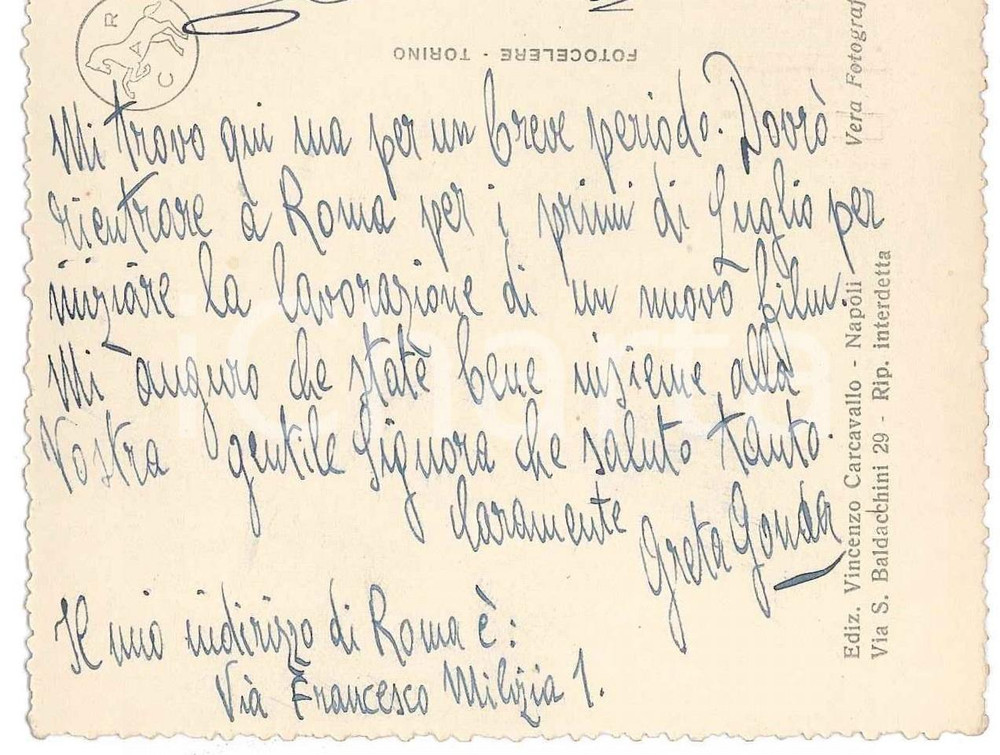 R A C
FOTOCELERE - TORINO
Mi trovo qui ma per un breve periodo. Dovrò
rientrare a Roma per i primi di luglio per
iniziare la lavorazione di un nuovo film.
Mi auguro che state bene insieme alla
Vostra gentile Signora che saluto tanto.
Caramente Greta Gonda
Il mio indirizzo di Roma è:
Via Francesco Milizia 1.
Vera Fotograf
Ediz. Vincenzo Carcavallo - Napoli
Via S. Baldacchini 29 - Rip. interdetta
iCharta